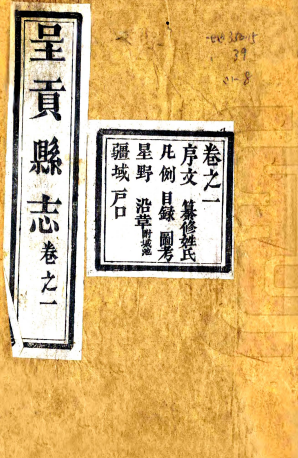 呈貢縣志 卷之一
卷之一
序文 纂修姓氏
凡例 目錄 圖考
星野 沿革附城池
疆域 戶口
39